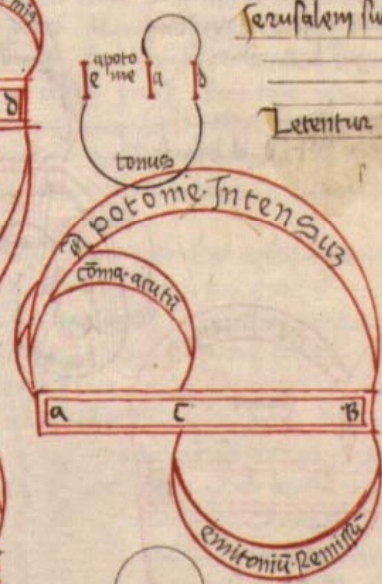 Jerusalem
Letentur
d
apoto
me
e a d
tonus
Apotome Intensuz
cōma acutū
a c B
emitoniū Remissū